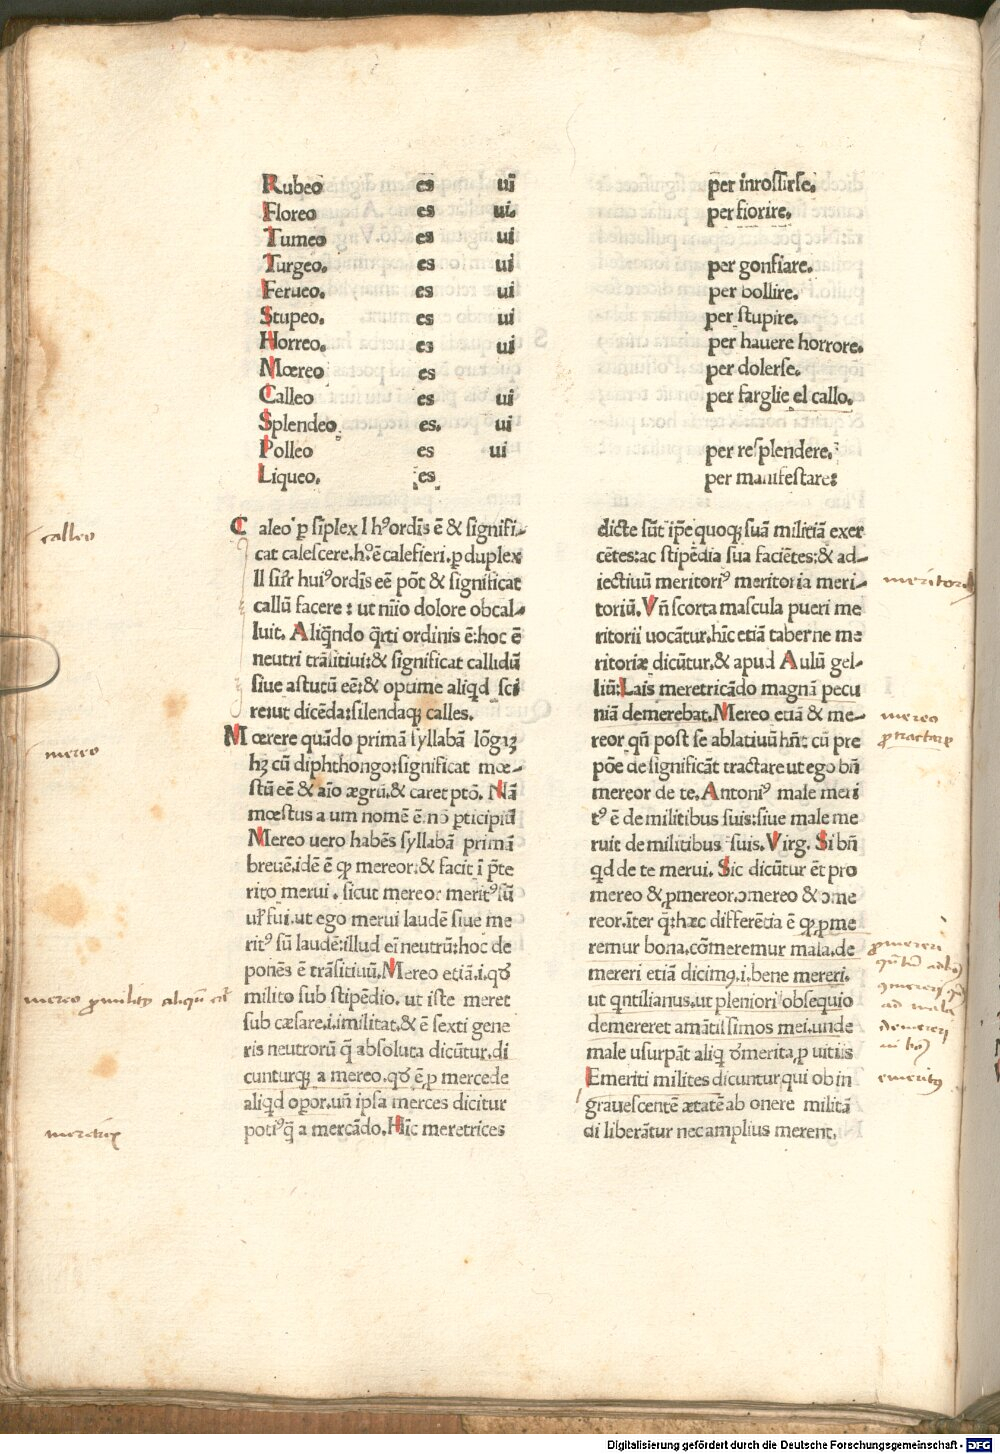 Rubeo es ui per inrossirse.
Floreo es ui. per fiorire.
Tumeo es ui
Turgeo. es ui per gonfiare.
Ferueo. es ui per bollire.
Stupeo. es ui per stupire.
Horreo. es ui per hauere horrore.
Mœreo es per dolerse.
Calleo es ui per farglie el callo.
Splendeo. es. ui
Polleo es ui per resplendere.
Liqueo. es per manifestare:
Caleo ꝑ sĩplex l hꝰordĩs ẽ & signifi-
cat calescere.hꝰẽ calefieri.ꝑ duplex
ll sil'r huiꝰordis eẽ põt & significat
callũ facere: ut nĩio dolore obcal-
luit. Aliqñdo q̃rti ordinis ẽ:hoc ẽ
neutri trãsitiui:& significat callidũ
siue astutũ eẽ:& optime aliqd sci
re:ut dicẽda:silendaqꝫ calles.
Mœrere quãdo primã syllabã lõgꝫ
hꝫ cũ diphthongo:significat mœ-
stũ eẽ & aĩo ægrũ.& caret ptõ. Nã
mœstus a um nomẽ ẽ.nõ ꝑticipiũ
Mereo uero habẽs syllabã primã
breuẽ.idẽ ẽ ꝙ mereor:& facit ĩ p̃te
rito merui. sicut mereor meritꝰsũ
ul' fui.ut ego merui laudẽ siue me
ritꝰ sũ laudẽ:illud eĩ neutrũ:hoc de
ponẽs ẽ trãsitiuũ.Mereo etiã.i.qđ
milito sub stipẽdio. ut iste meret
sub cæsare.i.militat.& ẽ sexti gene
ris neutrorũ q̃ absoluta dicũtur.di
cunturqꝫ a mereo.qđ ẽ ꝑ mercede
aliqd oꝑor.uñ ipsa merces dicitur
potiꝰq̃ a mercãdo.Hĩc meretrices
dicte sũt ip̃e quoqꝫ suã militiã exer
cẽtes:ac stipẽdia sua faciẽtes:& ad-
iectiuũ meritoriꝰ meritoria meri-
toriũ.Vñ scorta mascula pueri me
ritorii uocãtur.hĩc etiã taberne me
ritoriæ dicũtur.& apud Aulũ gel-
liũ:Lais meretricãdo magnã pecu
niã demerebat.Mereo etiã & me-
reor qñ post se ablatiuũ hñt cũ pre
põe de significãt tractare ut ego bñ
mereor de te.Antoniꝰ male meri
tꝰ ẽ de militibus suis:siue male me
ruit de militibus suis.Virg. Si bñ
qd de te merui. Sic dicũtur ẽt pro
mereo & ꝓmereor.ꝯmereo & ꝯme
reor.ĩter q̃:hæc differẽtia ẽ ꝙ ꝓme
remur bona.cõmeremur mala.de
mereri etiã dicimꝰ.i.bene mereri.
ut qntilianus.ut pleniori obsequio
demereret amãtissimos mei.unde
male usurpãt aliq đmerita ꝓ uitiis
Emeriti milites dicuntur qui ob in
grauescentẽ ætatẽ ab onere militã
di liberãtur nec amplius merent.
calleo
mereo
meretrix
meritorius
mereo
ꝓ tractare
ꝓmereri
demereri
emeritus
Digitalisierung gefördert durch die Deutsche Forschungsgemeinschaft - DFG